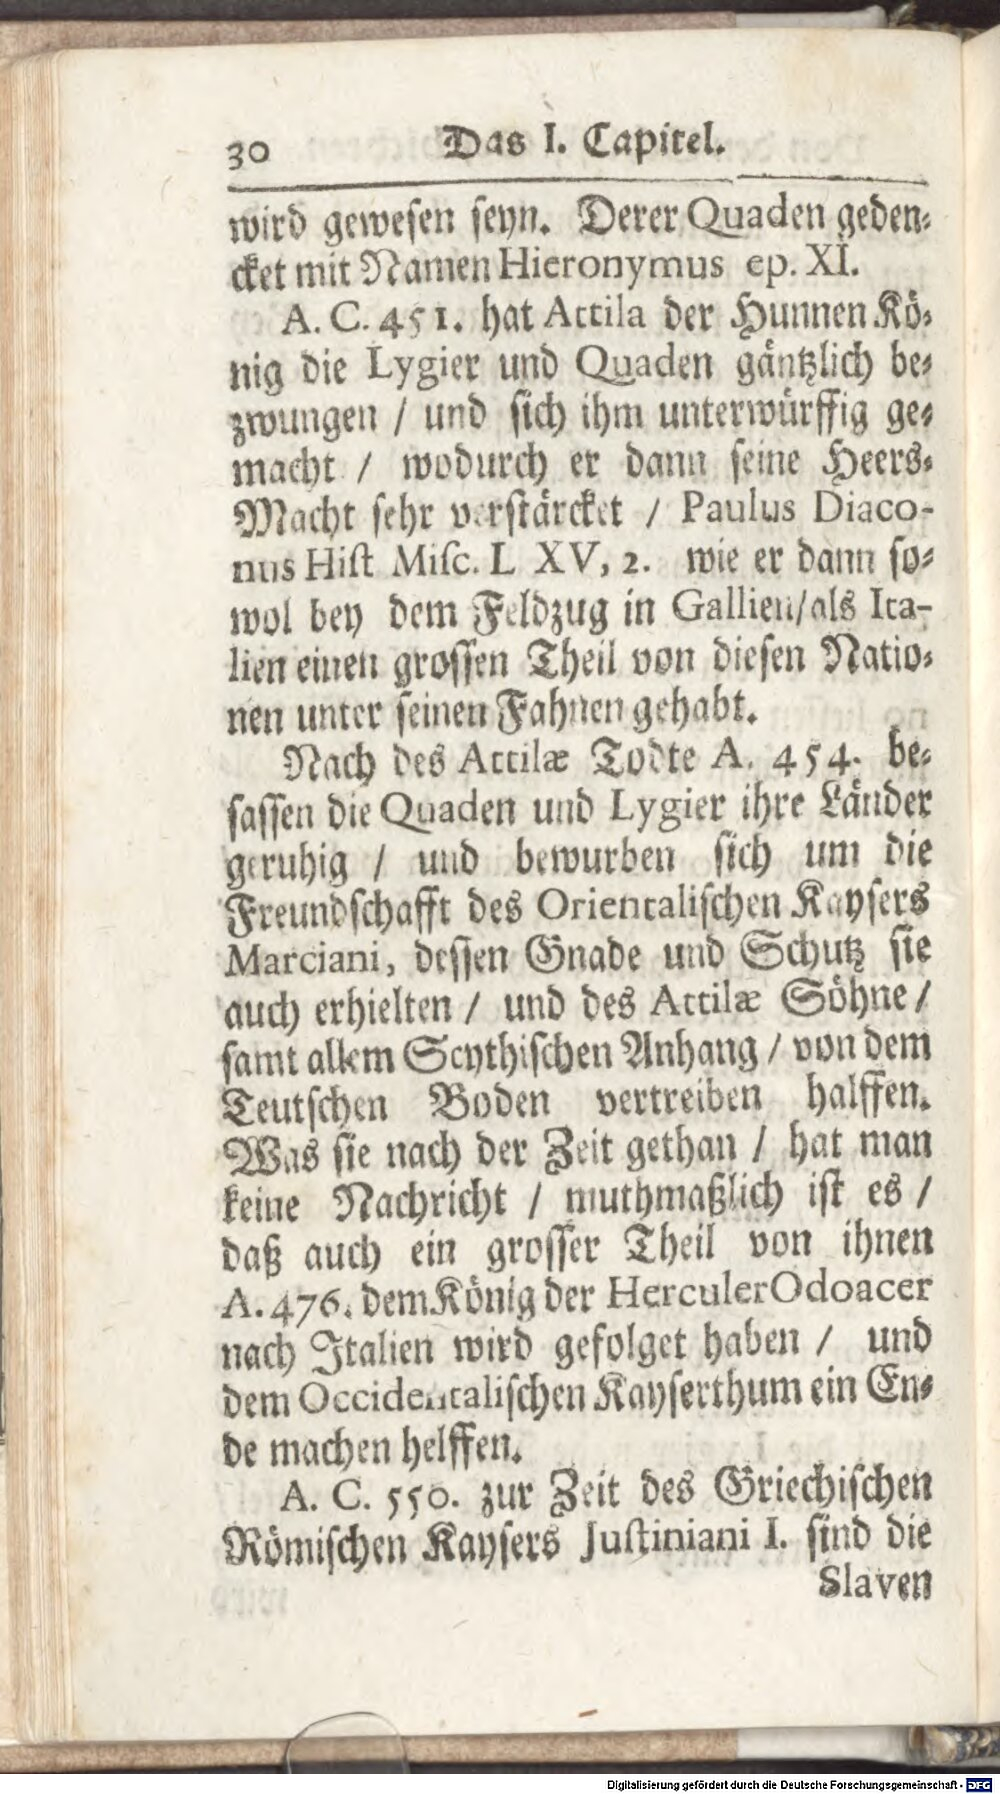 30 Das I. Capitel.
wird gewesen seyn. Derer Quaden geden-
cket mit Namen Hieronymus ep. XI.
A. C. 451. hat Attila der Hunnen Kö-
nig die Lygier und Quaden gäntzlich be-
zwungen / und sich ihm unterwürffig ge-
macht / wodurch er dann seine Heers-
Macht sehr verstärcket / Paulus Diaco-
nus Hist Misc. L XV, 2. wie er dann so-
wol bey dem Feldzug in Gallien/als Ita-
lien einen grossen Theil von diesen Natio-
nen unter seinen Fahnen gehabt.
Nach des Attilæ Todte A. 454. be-
sassen die Quaden und Lygier ihre Länder
geruhig / und bewurben sich um die
Freundschafft des Orientalischen Kaysers
Marciani, dessen Gnade und Schutz sie
auch erhielten / und des Attilæ Söhne /
samt allem Scythischen Anhang / von dem
Teutschen Boden vertreiben halffen.
Was sie nach der Zeit gethan / hat man
keine Nachricht / muthmaßlich ist es /
daß auch ein grosser Theil von ihnen
A. 476. dem König der Herculer Odoacer
nach Italien wird gefolget haben / und
dem Occidentalischen Kayserthum ein En-
de machen helffen.
A. C. 550. zur Zeit des Griechischen
Römischen Kaysers Justiniani I. sind die
Slaven
Digitalisierung gefördert durch die Deutsche Forschungsgemeinschaft - DFG